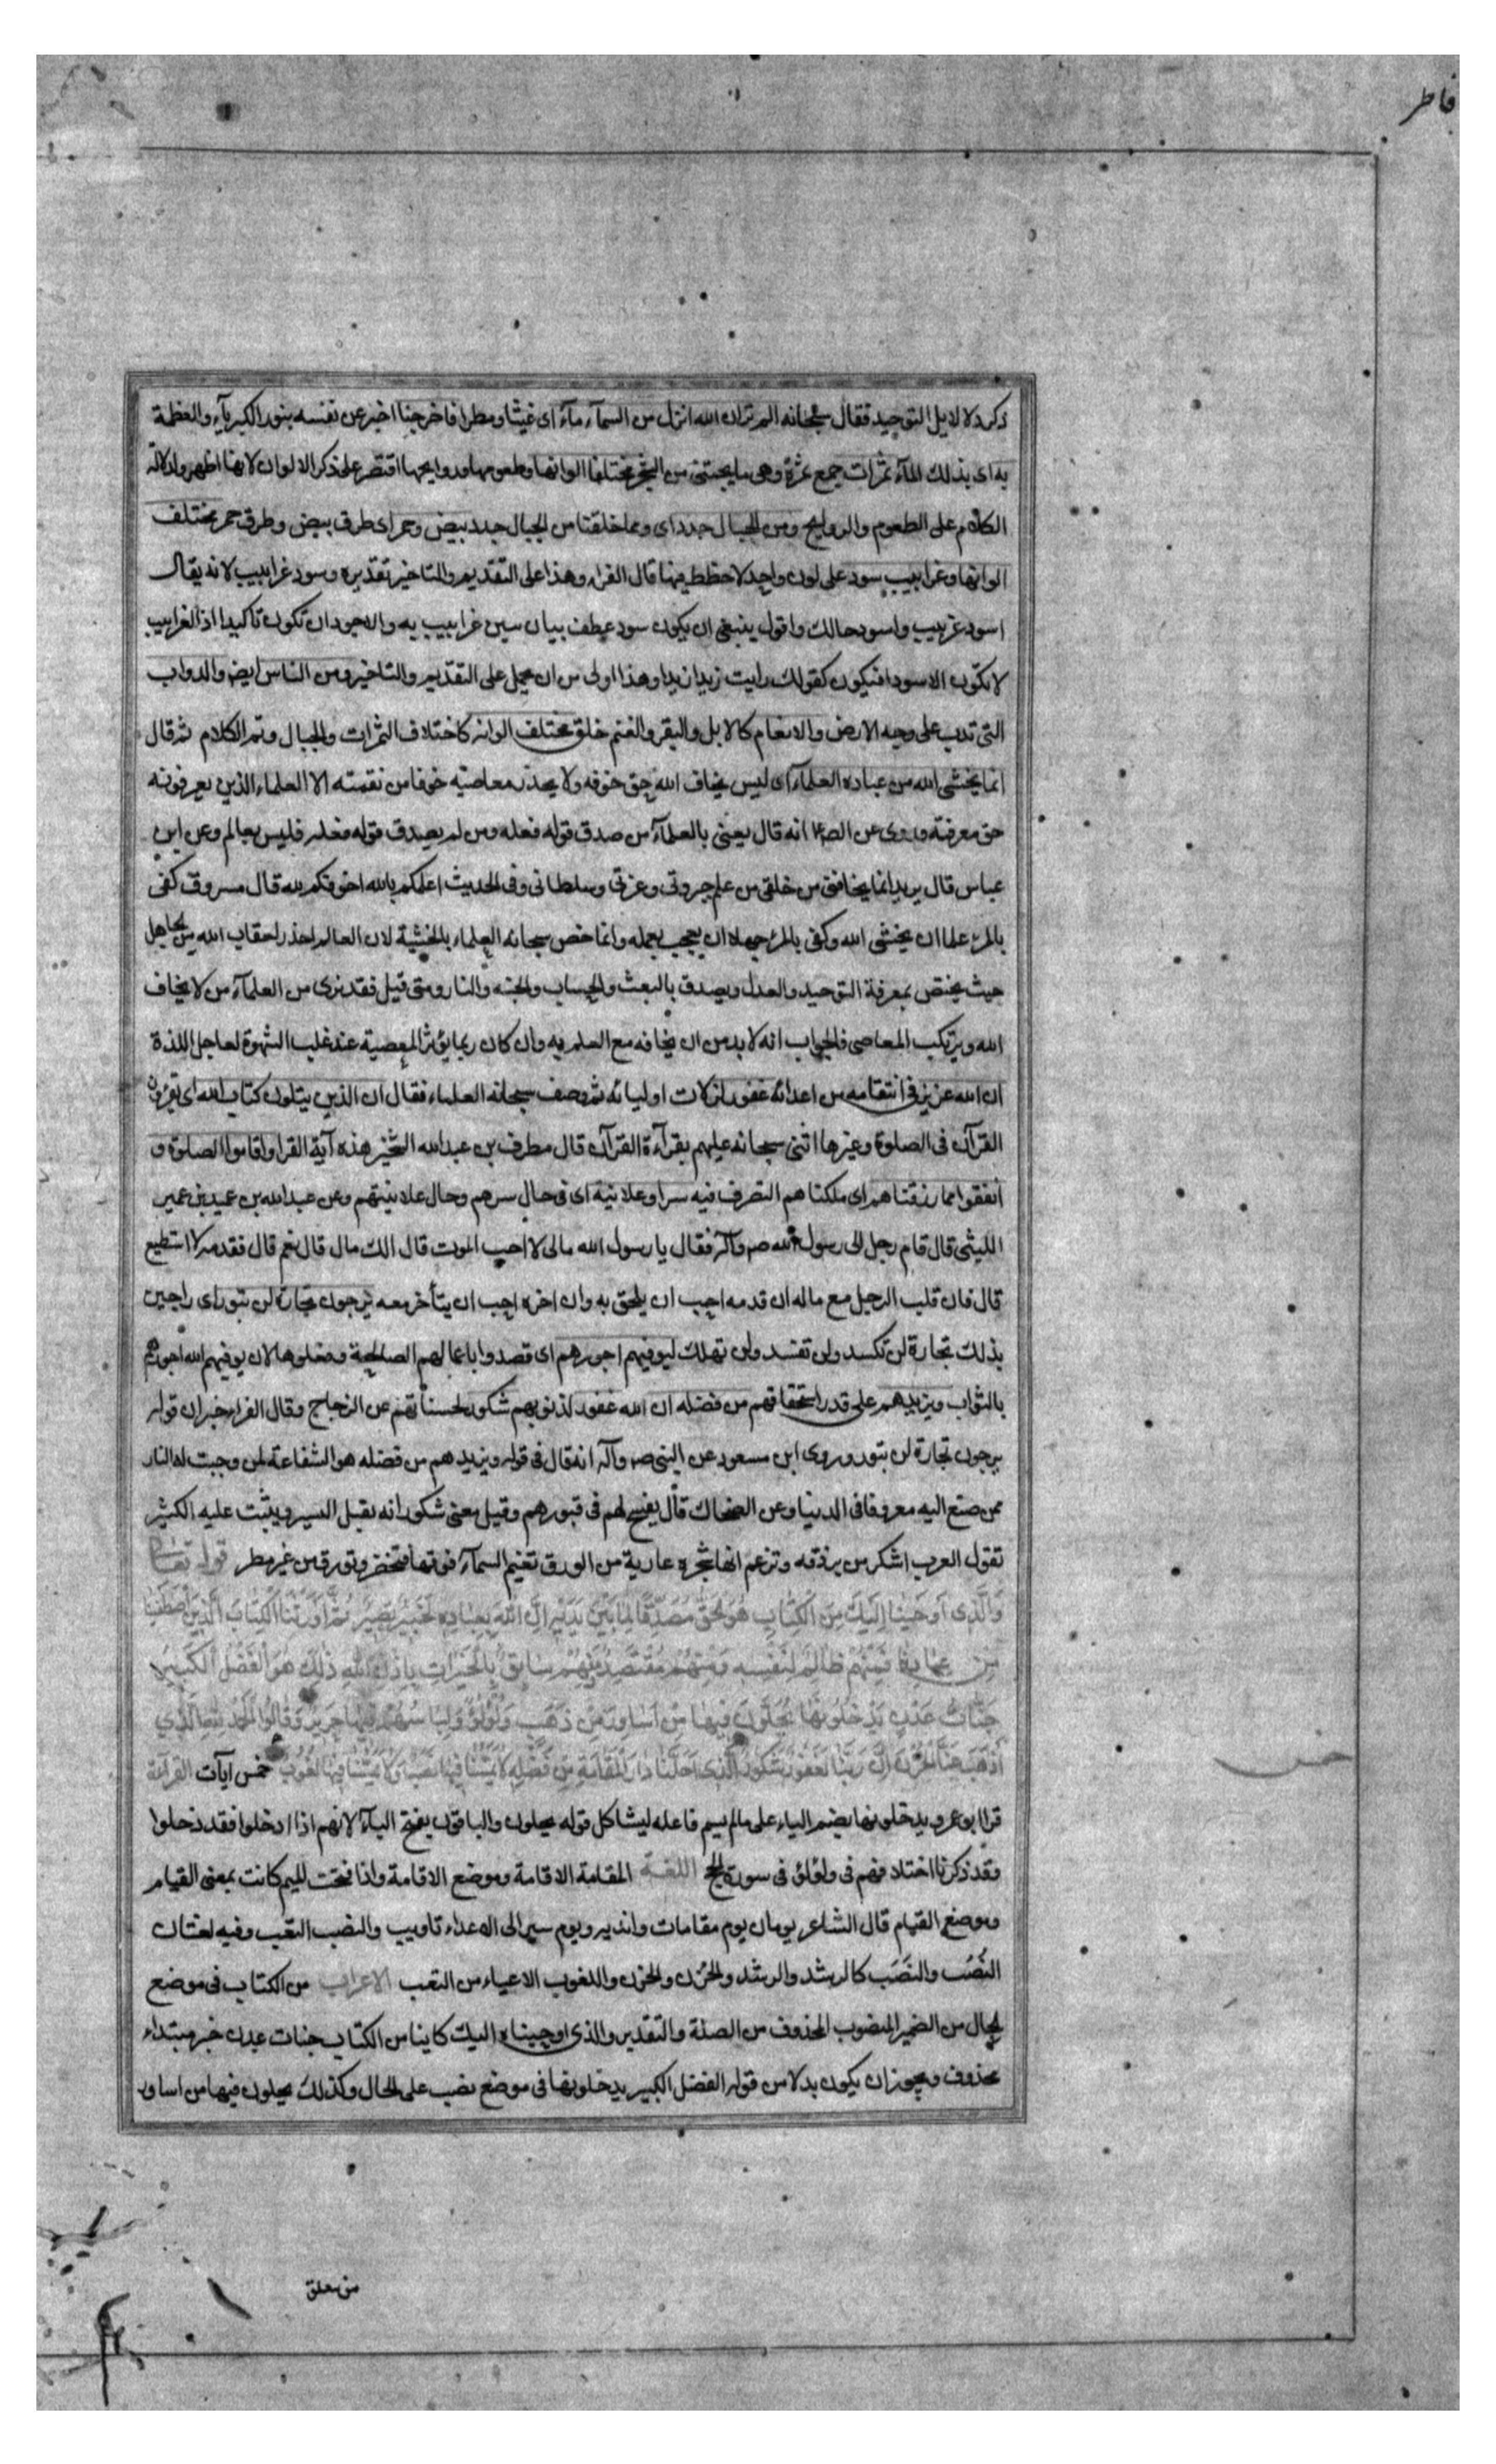 فاطر
ذكر دلايل التوحيد فقال سبحانه الم تر ان الله انزل من السمآء مآء اى غيثا ومطرا فاخرجنا اخبر عن نفسه بنون الكبريآء والعظمة
به اى بذلك المآء ثمرات جمع ثمرة وهى ما يجتنى من الشجر مختلفا الوانها وطعومها وروايحها اقتصر على ذكر الالوان لانها اظهر ولدلالة
الكلام على الطعوم والروايح ومن الجبال جدد اى ومما خلقنا من الجبال جدد بيض وحمر اى طرق بيض وطرق حمر مختلف
الوانها وغرابيب سود على لون واحد لا خطط فيها قال الفراء وهذا على التقديم والتاخير تقديره وسود غرابيب لانه يقال
اسود غربيب واسود حالك واقول ينبغى ان يكون سود عطف بيان يبين غرابيب به والاجود ان تكون تاكيدا اذ الغرابيب
لا تكون الا سودا فيكون كقولك رايت زيدا زيدا وهذا اولى من ان يحمل على التقديم والتاخير ومن الناس ايضا والدواب
التى تدب على وجه الارض والانعام كالابل والبقر والغنم خلق مختلف الوانه كاختلاف الثمرات والجبال وتم الكلام ثم قال
انما يخشى الله من عباده العلمآء اى ليس يخاف الله حق خوفه ولا يحذر معاصيه خوفا من نقمته الا العلماء الذين يعرفونه
حق معرفته وروى عن الص ع انه قال يعنى بالعلمآء من صدق قوله فعله ومن لم يصدق قوله فعله فليس بعالم وعن ابن
عباس قال يريد انما يخافنى من خلقى من علم جبروتى وعزتى وسلطانى وفى الحديث اعلمكم بالله اخوفكم لله قال مسروق كفى
بالمرء علما ان يخشى الله وكفى بالمرء جهلا ان يعجب بعمله وانما خص سبحانه العلماء بالخشية لان العالم احذر لعقاب الله من الجاهل
حيث يختص بمعرفة التوحيد والعدل ويصدق بالبعث والحساب والجنه والنار ومتى قيل فقد نرى من العلمآء من لا يخاف
الله ويرتكب المعاصى فالجواب انه لا بد من ان يخافه مع العلم به وان كان ربما يؤثر المعصية عند غلب الشهوة لعاجل اللذة
ان الله عزيز فى انتقامه من اعدائه غفور لزلات اوليائه ثم وصف سبحانه العلماء فقال ان الذين يتلون كتاب الله اى يقرؤن
القرآن فى الصلوة وغيرها اثنى سبحانه عليهم بقرآءة القرآن قال مطرف بن عبدالله الشخير هذه آية القرا واقاموا الصلوة و
انفقوا مما رزقناهم اى ملكناهم التصرف فيه سرا وعلانية اى فى حال سرهم وحال علانيتهم وعن عبدالله بن عبيد بن عمير
الليثى قال قام رجل الى رسول الله ص وآله فقال يا رسول الله مالى لا احب الموت قال الك مال قال نعم قال فقدمه لا استطيع
قال فان قلب الرجل مع ماله ان قدمه احب ان يلحق به وان اخره احب ان يتأخر معه يرجون تجارة لن تبور اى راجين
بذلك تجارة لن تكسد ولن تفسد ولن تهلك ليوفيهم اجورهم اى قصدوا باعمالهم الصالحة وفعلوها لان يوفيهم الله اجورهم
بالثواب ويزيدهم على قدر استحقاقهم من فضله ان الله غفور لذنوبهم شكور لحسناتهم عن الزجاج وقال الفراء خبر ان قوله
يرجون تجارة لن تبور وروى ابن مسعود عن النبى ص وآله انه قال فى قوله ويزيدهم من فضله هو الشفاعة لمن وجبت له النار
ممن صنع اليه معروفا فى الدنيا وعن الضحاك قال يفسح لهم فى قبورهم وقيل معنى شكور انه يقبل اليسير ويثيب عليه الكثير
تقول العرب اشكر من بروقه وتزعم انها شجره عارية من الورق تغيم السمآء فوقها فتخضر وتورق من غير مطر قوله تعالى
وَالَّذِى اَوحَينَا اِلَيكَ مِنَ الكِتَابِ هُوَ الحَقُّ مُصَدِّقًا لِمَا بَينَ يَدَيهِ اِنَّ اللهَ بِعِبَادِهِ لَخَبِيرٌ بَصِيرٌ ثُمَّ اَورَثنَا الكِتَابَ الَّذِينَ اصطَفَينَا
مِن عِبَادِنَا فَمِنهُم ظَالِمٌ لِنَفسِهِ وَمِنهُم مُقتَصِدٌ وَمِنهُم سَابِقٌ بِالخَيرَاتِ بِاِذنِ اللهِ ذٰلِكَ هُوَ الفَضلُ الكَبِيرُ
جَنَّاتُ عَدنٍ يَدخُلُونَهَا يُحَلَّونَ فِيهَا مِن اَسَاوِرَ مِن ذَهَبٍ وَلُؤلُؤًا وَلِبَاسُهُم فِيهَا حَرِيرٌ وَقَالُوا الحَمدُ لِلّٰهِ الَّذِى
اَذهَبَ عَنَّا الحَزَنَ اِنَّ رَبَّنَا لَغَفُورٌ شَكُورٌ الَّذِى اَحَلَّنَا دَارَ المُقَامَةِ مِن فَضلِهِ لَا يَمَسُّنَا فِيهَا نَصَبٌ وَلَا يَمَسُّنَا فِيهَا لُغُوبٌ خمس آيات القرآءة
خمس
قرا ابو عمرو يدخلونها بضم الياء على ما لم يسم فاعله ليشاكل قوله يحلون والباقون بفتح اليآء لانهم اذا ادخلوا فقد دخلوا
وقد ذكرنا اختلافهم فى ولؤلؤ فى سورة الحج اللغة المقامة الاقامة وموضع الاقامة واذا فتحت الميم كانت بمعنى القيام
وموضع القيام قال الشاعر يومان يوم مقامات واندية ويوم سير الى الاعداء تاويب والنصب التعب وفيه لغتان
النُصُب والنَصَب كالرشد والرشد والحُزن والحزن واللغوب الاعياء من التعب الاعراب من الكتاب فى موضع
الحال من الضمير المنصوب المحذوف من الصلة والتقدير والذى اوحيناه اليك كاينا من الكتاب جنات عدن خبر مبتداء
محذوف ويجوز ان يكون بدلا من قوله الفضل الكبير يدخلونها فى موضع نصب على الحال وكذلك يحلون فيها من اساور
من يتعلق